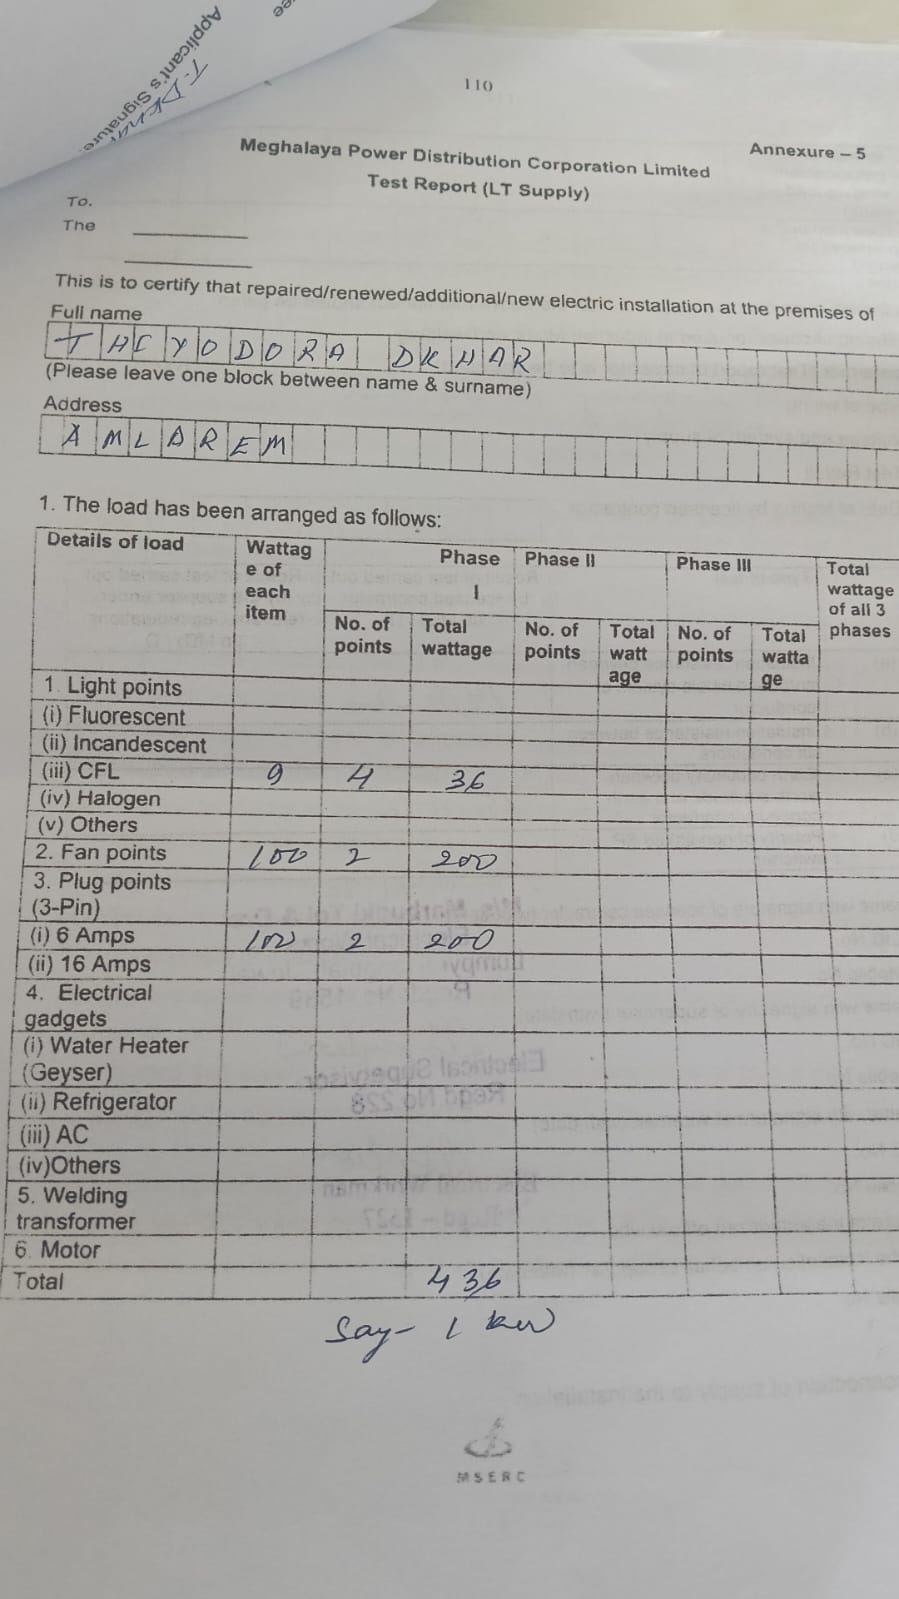 ee
Applicant's Signature.
T. Dkhar
110
Annexure – 5
Meghalaya Power Distribution Corporation Limited
Test Report (LT Supply)
To.
The
This is to certify that repaired/renewed/additional/new electric installation at the premises of
Full name
THEYODORA DKHAR
(Please leave one block between name & surname)
Address
AMLAREM
1. The load has been arranged as follows:
Details of load Wattag e of each item Phase I Phase II Phase III Total wattage of all 3 phases
No. of points Total wattage No. of points Total watt age No. of points Total watta ge
1. Light points
(i) Fluorescent
(ii) Incandescent
(iii) CFL 9 4 36
(iv) Halogen
(v) Others
2. Fan points 100 2 200
3. Plug points
(3-Pin)
(i) 6 Amps 100 2 200
(ii) 16 Amps
4. Electrical
gadgets
(i) Water Heater
(Geyser)
(ii) Refrigerator
(iii) AC
(iv)Others
5. Welding
transformer
6. Motor
Total 436
Say- 1 kw
MSERC